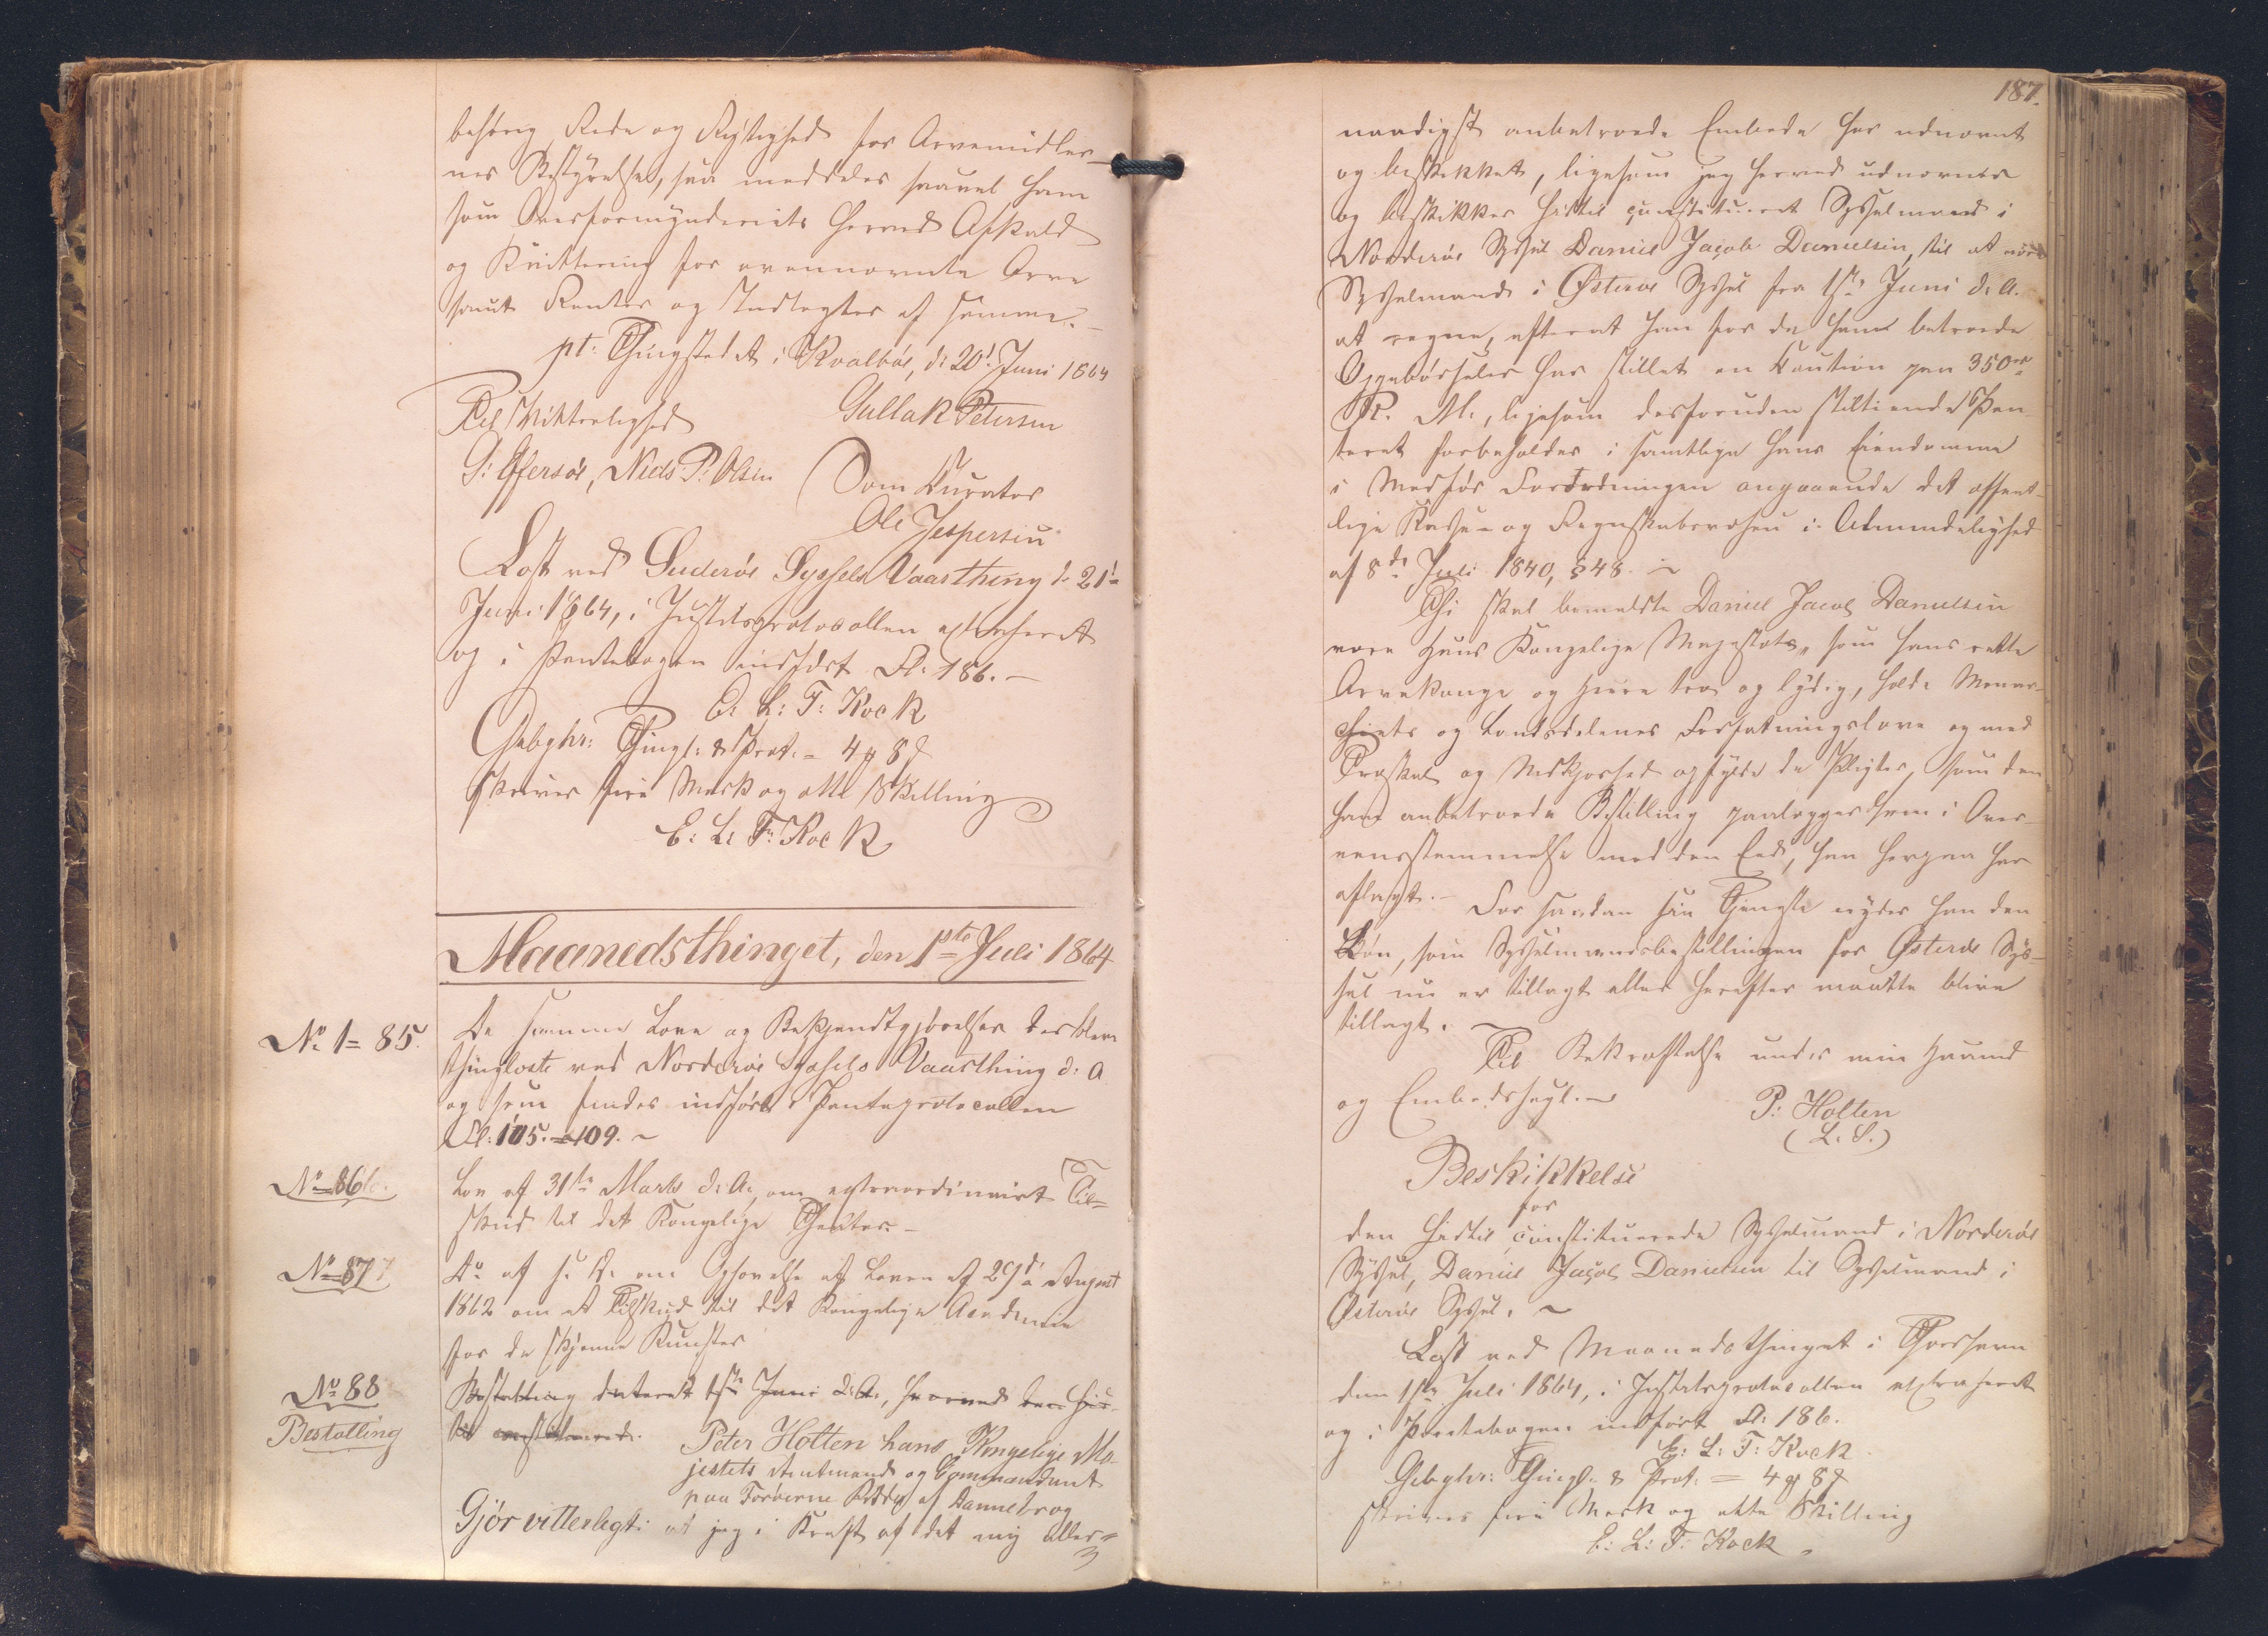 behörig Rede og Rigtighed for Arvemidler-
nes Bestyrelse, saa meddeles saavel ham
som Overformynderiets herved Afkald
og Kvittering for ovennævnte Arv
samt Renter og Indtægter af samme.-
pt. Thingstedet i Kvalböe, d: 20d Juni 1864
Til Vitterlighed Gullak Petersen
S: Effersöe, Niels P: Olsen Som Kurator
Ole Jespersen
Læst ved Suderöe Syssels Vaarthing d. 21d
Juni 1864, i Justitsprotocollen extraheret
og i Pantebogen indfört Fl. 186. -
E: L: T: Kock
Gebyhr: Thingl: & Prot: = 4 ₻ 8 ẞ
skriver fire Mark og otte Skilling
E: L: T: Kock
Maanedsthinget, den 1ste Juli 1864
No 1 = 85. De samme Love og Bekjendtgjörelser der bleve
thinglæste ved Norderöe Syssels Vaarthing d: A
og som findes indförte i Panteprotocollen
Fl: 105. = 109. ~
No 86 Lov af 31te Marts d: A: om extraordinairt Til-
skud til det Kongelige Theater. -
No 87 Do af s: D: om Ophævelse af Loven af 29d August
1862 om et Tilskud til det Kongelige Academie
for de skjönne Kunster
No 88 Bestalling dateret 1ste Juni d: A:, hvorved den hid-
Bestalling til constituerede. Peter Holten hans Kongelige Ma-
jestets Amtmand og Commandant
paa Færöerne Ridder af Dannebrog
Gjör vitterligt: at jeg i Kraft af det mig aller-
187.
naadigst anbetroede Embede har udnævnt
og beskikket, ligesom jeg herved udnævner
og beskikker hidtil constitueret Sysselmand i
Norderöe Syssel Daniel Jacob Danielsen, til at være
Sysselmand i Österöe Syssel fra 1ste Juni d. A.
at regne, efterat han for de ham betroede
Oppebörseler har stillet en Kaution paa 350
R. M., ligesom desforuden stiltiende Pan-
teret forbeholdes i samtlige hans Eiendomme
i Medför Forordningen angaaende det offent-
lige Kasse- og Regnskabsvæsen i Almindelighed
af 8de Juli 1840, § 48. ~
Thi skal bemeldte Daniel Jacob Danielsen
være Hans Kongelige Majestæt, som hans rette
Arvekonge og Herre tro og lydig, holde Monar-
chiets og Landsdelenes Forfatningslove og med
Troskab og Redkjærhed opfylde de Pligter, som den
ham anbetroede Bestilling paalægger ham i Over-
eensstemmelse med den Eed, han herpaa har
aflagt. - For saadan sin Tjeneste nyder han den
Lön, som Sysselmandsbestillingen for Österöe Sys-
sel nu er tillagt eller herefter maatte blive
tillagt. ~
Til Bekræftelse under min Haand
og Embedssegl. ~
P: Holten
(L. S.)
Beskikkelse
for
den hidtil constituerede Sysselmand i Norderöe
Syssel, Daniel Jacob Danielsen til Sysselmand i
Österöe Syssel. ~
Læst ved Maanedsthinget i Thorshavn
den 1ste Juli 1864, i Justitsprotocollen extraheret
og i Pantebogen indfört Fl: 186.
E: L: T: Kock
Gebyhr: Thingl: & Prot: = 4 ₻ 8 ẞ
skriver fire Mark og otte Skilling
E: L: T: Kock